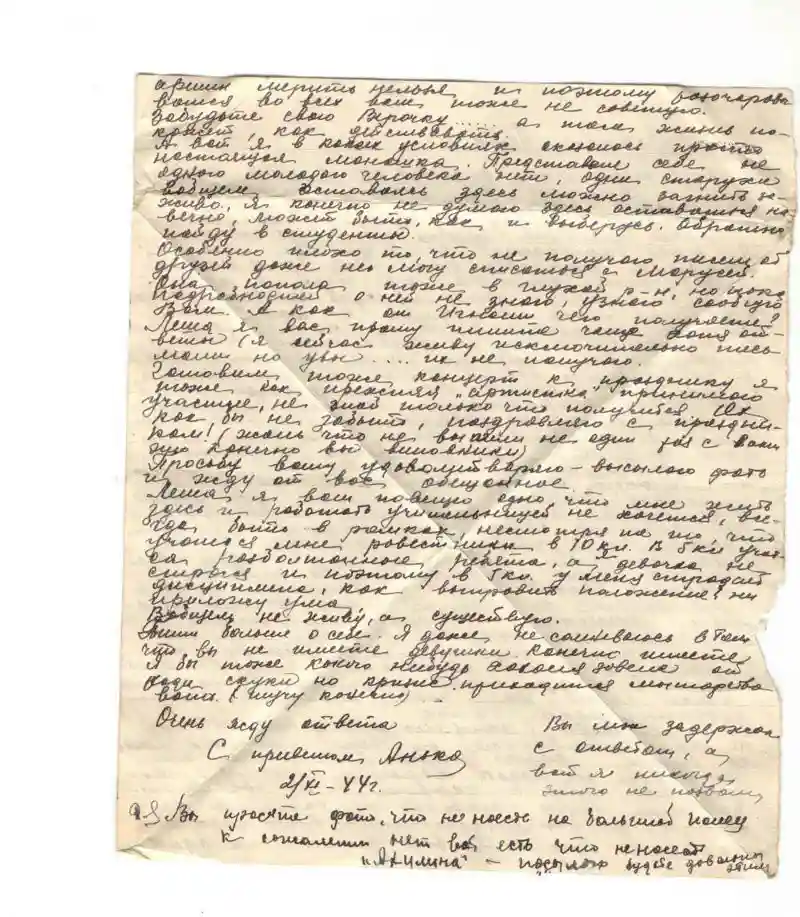 аршин мерить нельзя и поэтому разочаровы
ваться во всех вам тоже не советую.
Забудьте свою Верочку ..... а там жизнь по-
кажет, как действовать.
А вот я в каких условиях оказалась просто
настоящая монашка. Представьте себе не
одного молодого человека нет, одни старухи
вобщем оставаясь здесь можно загнить за-
живо. Я конечно не думаю здесь оставаться на-
вечно, может быть, как и выберусь. Обратно
пойду в студенты.
Особенно плохо то, что не получаю писем от
друзей даже не могу списаться с Марусей.
Она попала тоже в глухой р-н, но пока
подробностей о ней не знаю, узнаю сообщу
Вам. А как от чего получаете?
Леша я вас прошу пишите чаще хотя от-
веты (я сейчас живу исключительно пись
мами но увы .... их не получаю.
Готовим тоже концерт к празднику я
тоже как прежняя „артистка" принимаю
участие, не знаю только что получится. Ах
как, бы не забыть, поздравляю с праздни-
ком! (жаль что не выпили не один раз с Вами
конечно вы виновники)
Просьбу вашу удовлетворяю - высылаю фото
и жду от вас обещанное.
Леша я вам повторю одно, что мне жить
здесь и работать учительницей не хочется, все-
гда быть в рамках, несмотря на то, что
учатся мне ровестники в 10 кл. В 8 кл учат-
ся разболтанные ребята, а девочка не
старься и поэтому в 8 кл. у меня страдает
дисциплина, как выправить положение! ни
приложу ума.
Вобщем не живу, а существую.
Пиши больше о себе. Я даже не сомневаюсь в том
что вы не имеете девушки конечно имеете
Я бы тоже какого нибудь завела от
ради скуки но кризис. приходится монашество
вать. (шучу конечно)
Очень жду ответа
С приветом Анька
2/XI-44г.
Вы мне задержали
с ответом, а
вот я никогда
этого не позволю,
P.S Вы просите фото, что не ность на большой палец
к сожалению нет вот есть что не носет
„Акулина" - посылаю будьте довольны
этим